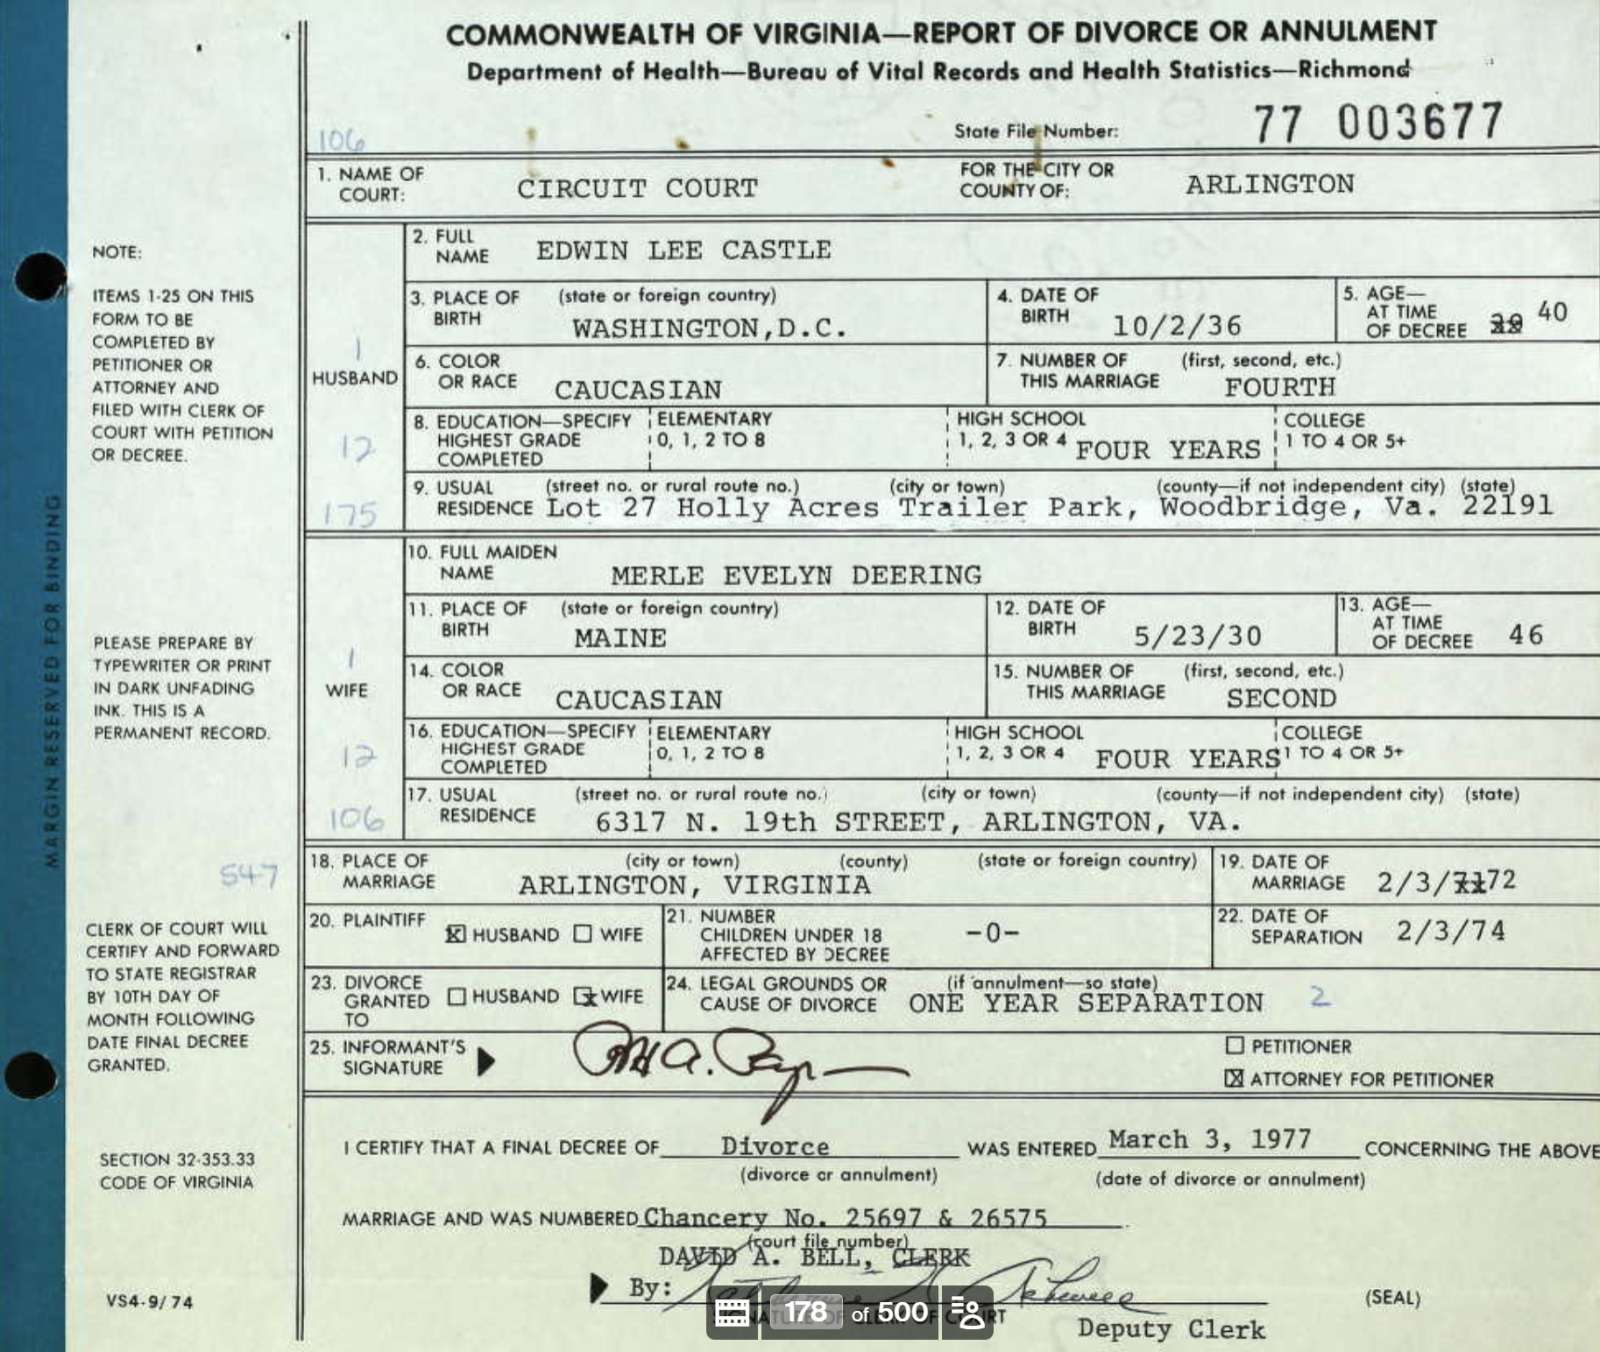 COMMONWEALTH OF VIRGINIA—REPORT OF DIVORCE OR ANNULMENT
Department of Health—Bureau of Vital Records and Health Statistics—Richmond
106
State File Number: 77 003677
1. NAME OF COURT: CIRCUIT COURT
FOR THE CITY OR COUNTY OF: ARLINGTON
NOTE:
ITEMS 1-25 ON THIS
FORM TO BE
COMPLETED BY
PETITIONER OR
ATTORNEY AND
FILED WITH CLERK OF
COURT WITH PETITION
OR DECREE.
MARGIN RESERVED FOR BINDING
1
HUSBAND
12
175
2. FULL NAME EDWIN LEE CASTLE
3. PLACE OF BIRTH (state or foreign country) WASHINGTON,D.C.
4. DATE OF BIRTH 10/2/36
5. AGE— AT TIME OF DECREE 40
6. COLOR OR RACE CAUCASIAN
7. NUMBER OF THIS MARRIAGE (first, second, etc.) FOURTH
8. EDUCATION—SPECIFY HIGHEST GRADE COMPLETED
ELEMENTARY 0, 1, 2 TO 8
HIGH SCHOOL 1, 2, 3 OR 4 FOUR YEARS
COLLEGE 1 TO 4 OR 5+
9. USUAL RESIDENCE (street no. or rural route no.) (city or town) (county—if not independent city) (state)
Lot 27 Holly Acres Trailer Park, Woodbridge, Va. 22191
PLEASE PREPARE BY
TYPEWRITER OR PRINT
IN DARK UNFADING
INK. THIS IS A
PERMANENT RECORD.
1
WIFE
12
106
10. FULL MAIDEN NAME MERLE EVELYN DEERING
11. PLACE OF BIRTH (state or foreign country) MAINE
12. DATE OF BIRTH 5/23/30
13. AGE— AT TIME OF DECREE 46
14. COLOR OR RACE CAUCASIAN
15. NUMBER OF THIS MARRIAGE (first, second, etc.) SECOND
16. EDUCATION—SPECIFY HIGHEST GRADE COMPLETED
ELEMENTARY 0, 1, 2 TO 8
HIGH SCHOOL 1, 2, 3 OR 4 FOUR YEARS
COLLEGE 1 TO 4 OR 5+
17. USUAL RESIDENCE (street no. or rural route no.) (city or town) (county—if not independent city) (state)
6317 N. 19th STREET, ARLINGTON, VA.
547
18. PLACE OF MARRIAGE (city or town) (county) (state or foreign country)
ARLINGTON, VIRGINIA
19. DATE OF MARRIAGE 2/3/72
20. PLAINTIFF HUSBAND WIFE
21. NUMBER CHILDREN UNDER 18 AFFECTED BY DECREE -0-
22. DATE OF SEPARATION 2/3/74
23. DIVORCE GRANTED TO HUSBAND WIFE
24. LEGAL GROUNDS OR CAUSE OF DIVORCE (if annulment—so state)
ONE YEAR SEPARATION 2
25. INFORMANT'S SIGNATURE
PETITIONER
ATTORNEY FOR PETITIONER
CLERK OF COURT WILL
CERTIFY AND FORWARD
TO STATE REGISTRAR
BY 10TH DAY OF
MONTH FOLLOWING
DATE FINAL DECREE
GRANTED.
SECTION 32-353.33
CODE OF VIRGINIA
I CERTIFY THAT A FINAL DECREE OF Divorce WAS ENTERED March 3, 1977 CONCERNING THE ABOVE
(divorce or annulment) (date of divorce or annulment)
MARRIAGE AND WAS NUMBERED Chancery No. 25697 & 26575
(court file number)
DAVID A. BELL, CLERK
By:
178 of 500
(SEAL)
Deputy Clerk
VS4-9/74